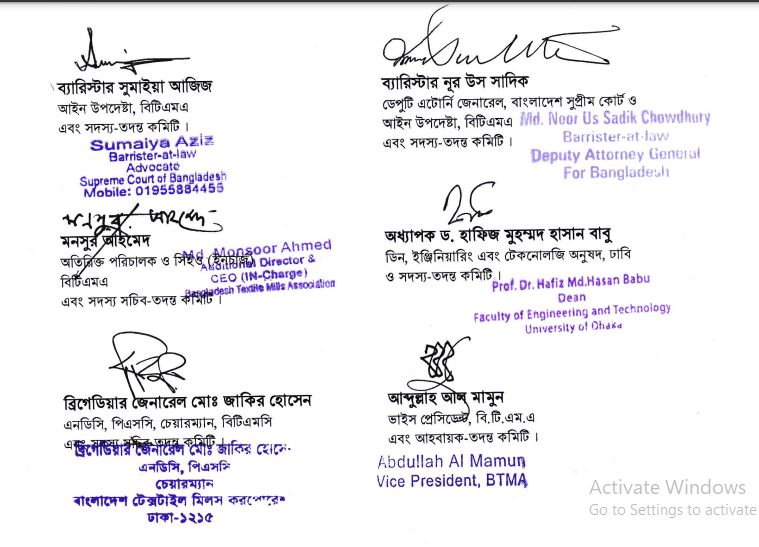 ব্যারিস্টার সুমাইয়া আজিজ
আইন উপদেষ্টা, বিটিএমএ
এবং সদস্য-তদন্ত কমিটি।
Sumaiya Aziz
Barrister-at-law
Advocate
Supreme Court of Bangladesh
Mobile: 01955884455
ব্যারিস্টার নূর উস সাদিক
ডেপুটি এটোর্নি জেনারেল, বাংলাদেশ সুপ্রীম কোর্ট ও
আইন উপদেষ্টা, বিটিএমএ
এবং সদস্য-তদন্ত কমিটি।
Md. Noor Us Sadik Chowdhury
Barrister-at-law
Deputy Attorney General
For Bangladesh
মনসুর আহমেদ
মনসুর আহমেদ
অতিরিক্ত পরিচালক ও সিইও (ইনচার্জ)
বিটিএমএ
এবং সদস্য সচিব-তদন্ত কমিটি।
Md. Monsoor Ahmed
Additional Director &
CEO (IN-Charge)
Bangladesh Textile Mills Association
অধ্যাপক ড. হাফিজ মুহম্মদ হাসান বাবু
ডিন, ইঞ্জিনিয়ারিং এবং টেকনোলজি অনুষদ, ঢাবি
ও সদস্য-তদন্ত কমিটি।
Prof. Dr. Hafiz Md.Hasan Babu
Dean
Faculty of Engineering and Technology
University of Dhaka
ব্রিগেডিয়ার জেনারেল মোঃ জাকির হোসেন
এনডিসি, পিএসসি, চেয়ারম্যান, বিটিএমসি
এবং সদস্য সচিব-তদন্ত কমিটি।
ব্রিগেডিয়ার জেনারেল মোঃ জাকির হোসে
এনডিসি, পিএসসি
চেয়ারম্যান
বাংলাদেশ টেক্সটাইল মিলস করপোরে
ঢাকা-১২১৫
আব্দুল্লাহ আল মামুন
ভাইস প্রেসিডেন্ট, বি.টি.এম.এ
এবং আহবায়ক-তদন্ত কমিটি।
Abdullah Al Mamun
Vice President, BTMA
Activate Windows
Go to Settings to activate